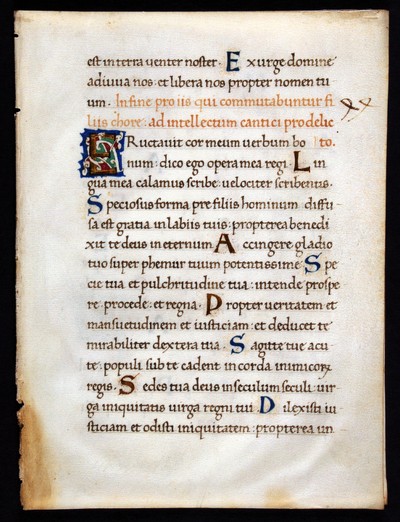 est in terra uenter noster · Exurge domine
adiuua nos · et libera nos propter nomen tu
um · In fine pro iis qui commutabuntur fi
liis chore · ad intellectum cantici pro dilec
ERuctauit cor meum uerbum bo to.
num : dico ego opera mea regi · Lin
gua mea calamus scribe : uelociter scribentis ·
Speciosus forma pre filiis hominum diffu
sa est gratia in labiis tuis : propterea benedi
xit te deus in eternum Accingere gladio
tuo super phemur tuum potentissime · Spe
cie tua et pulchritudine tua : intende prospe
re procede : et regna · Propter ueritatem et
mansuetudinem et iusticiam : et deducet te
mirabiliter dextera tua · Sagitte tue acu
te : populi sub te cadent in corda inimicorum
regis · Sedes tua deus in seculum seculi : uir
ga iniquitatis uirga regni tui Dilexisti iu
sticiam et odisti iniquitatem : propterea un